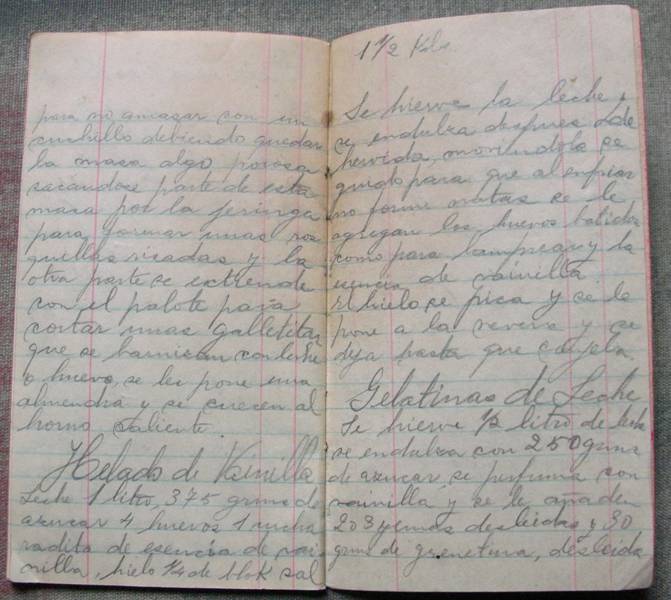 para no amasar con un
cuchillo debiendo quedar
la masa algo porosa
sacandose parte de esta
masa por la jeringa
para formar unas ros
quillas rizadas y la
otra parte se extiende
con el palote para
cortar unas galletitas
que se barnizan con leche
o huevo, se les pone una
almendra y se cuecen al
horno caliente.
Helado de Vainilla
Leche 1 litro, 375 grms de
azucar 4 huevos 1 cucha
radita de esencia de vai
nilla, hielo 1/4 de blok sal
1 1/2 Kilo
Se hierve la leche,
se endulza despues de
hervida, moviendola se
guido para que al enfriar
no forme natas se le
agregan los huevos batidos
como para lamprear y la
esencia de vainilla
El hielo se pica y se le
pone a la nevera y se
deja hasta que cuajela.
Gelatinas de Leche
Se hierve 1/2 litro de leche
se endulza con 250 grms
de azucar, se perfuma con
vainilla y se le añaden
2 o 3 yemas desleidas y 30
grms de grenetina, desleida